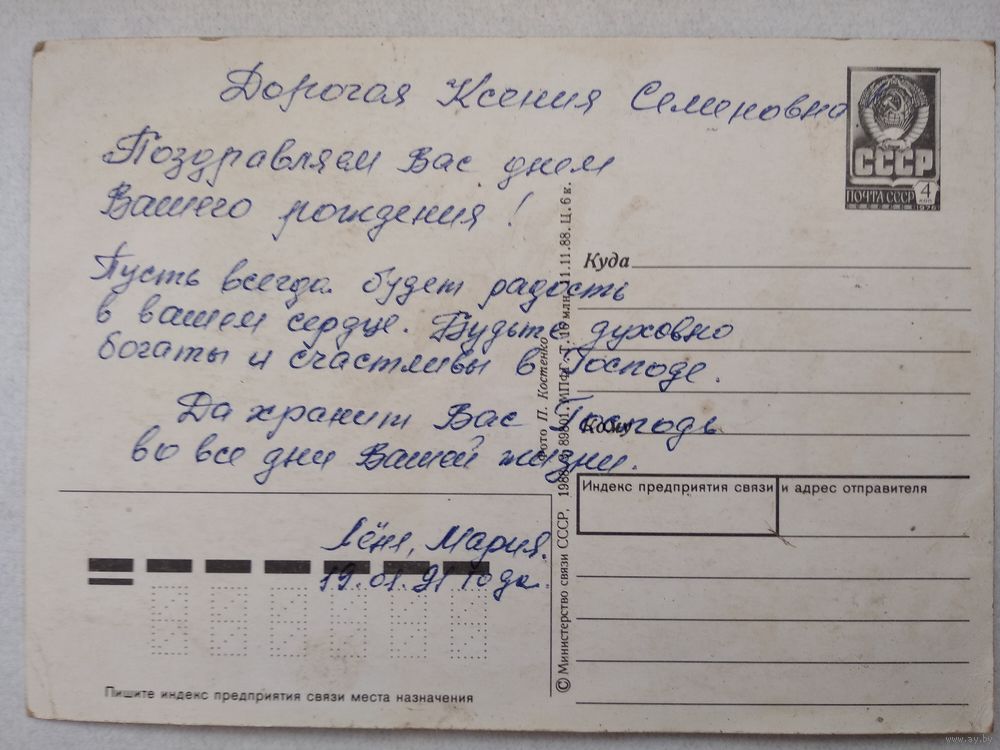 Дорогая Ксения Семеновна
Поздравляем Вас днем
Вашего рождения!
Пусть всегда будет радость
в вашем сердце. Будьте духовно
богаты и счастливы в Господе.
Да хранит Вас Господь
во все дни Вашей жизни.
Мария.
19.01.91 года.
СССР
ПОЧТА СССР
4
КОП
1976
Куда
Кому
Индекс предприятия связи и адрес отправителя
Пишите индекс предприятия связи места назначения
© Министерство связи СССР, 1988.
Фото П. Костенко
11.11.88. Ц. 6 к.
www.ay.by